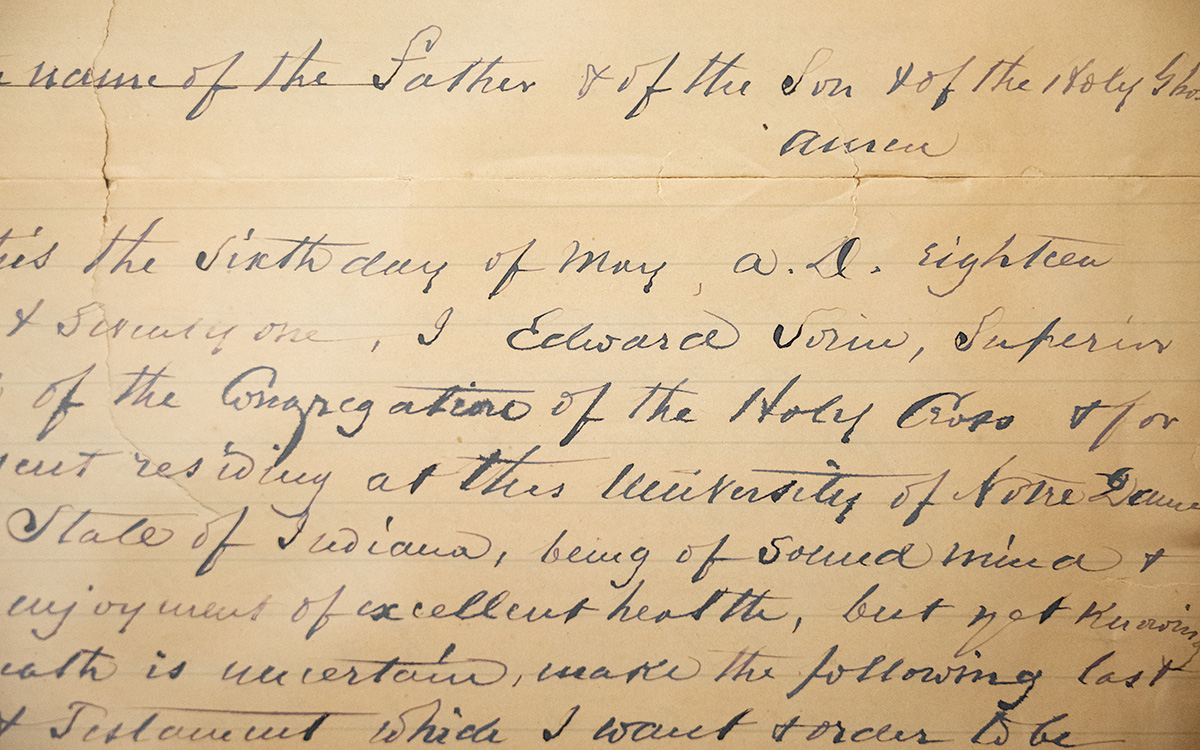 name of the Father & of the Son & of the Holy Gho
amen
the Sixth day of May, a. D. Eighteen
& Seventy one, I Edward Sorin, Superior
of the Congregation of the Holy Cross & for
ent residing at this University of Notre Dame
State of Indiana, being of Sound mind &
enjoyment of excellent health, but yet Knowing
eath is uncertain, make the following last
& Testament which I want & order to be